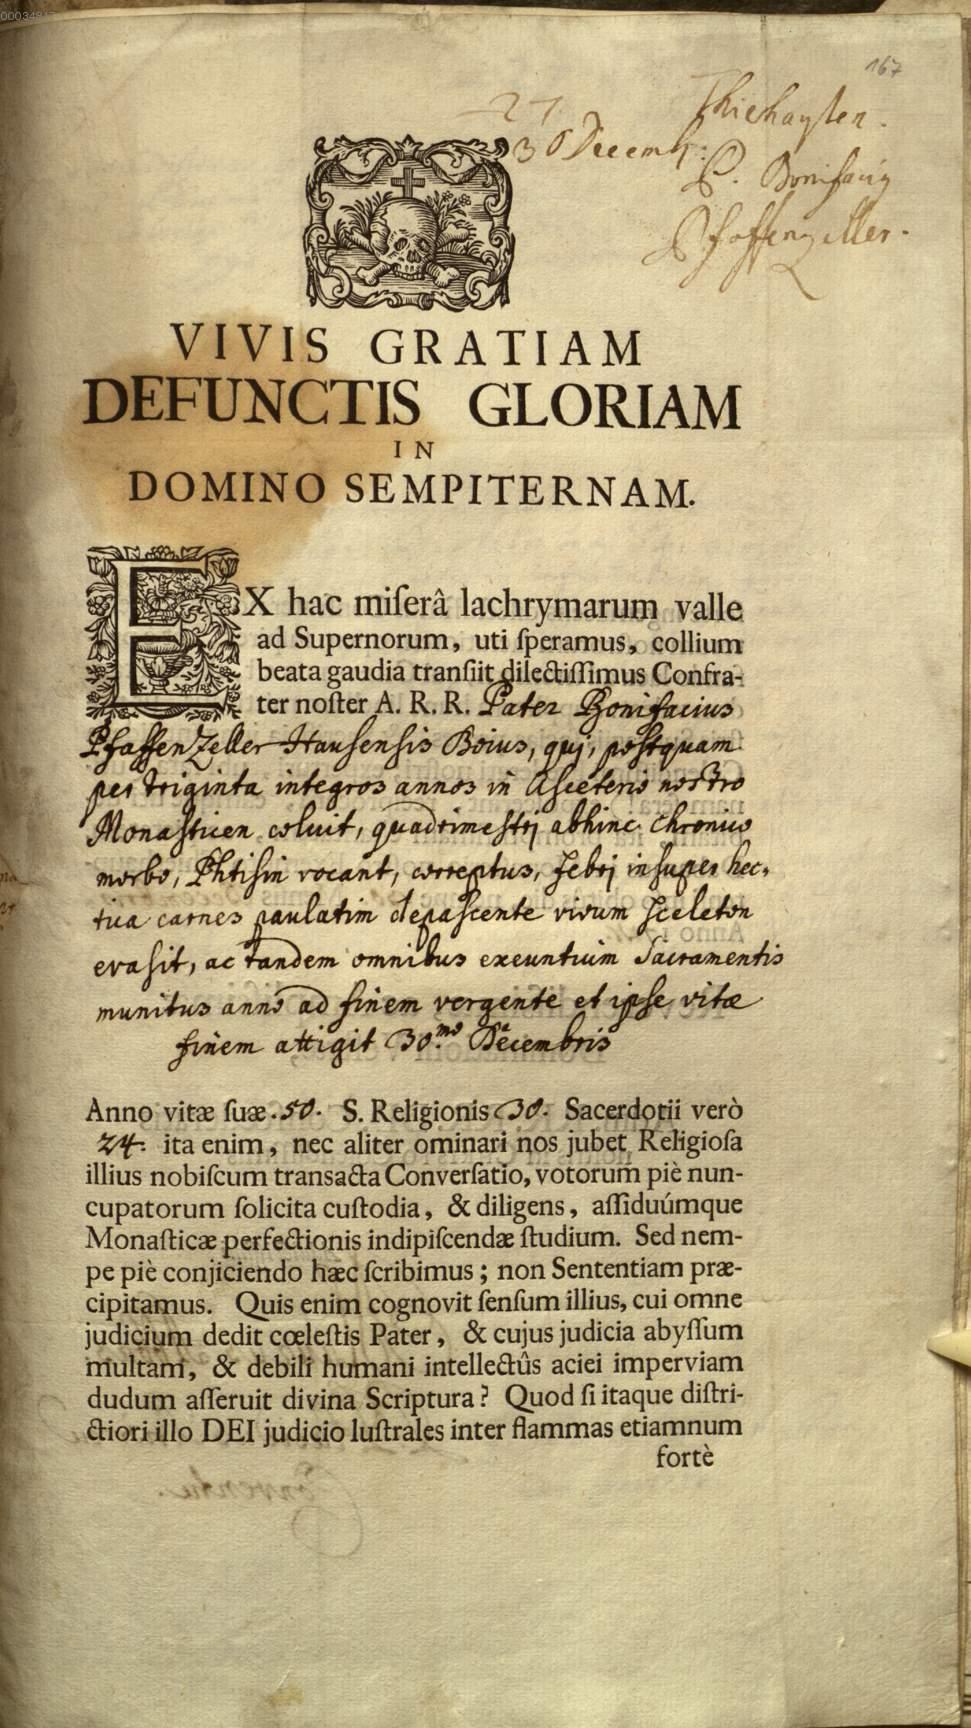 167
27
30 Decemb:
P. Bonifaciũ
Pfaffenzeller.
VIVIS GRATIAM
DEFUNCTIS GLORIAM
IN
DOMINO SEMPITERNAM.
EX hac miſerâ lachrymarum valle
ad Supernorum, uti ſperamus, collium
beata gaudia tranſiit dilectiſſimus Confra-
ter noſter A. R. R. Pater Bonifacius
PfaffenZeller Hausensis Boius, qui, postquam
per triginta integros annos in Asceterio nostro
Monasticen coluit, quadrimestri abhinc chronico
morbo, Phtisin vocant, correptus, febri insuper hec,
tica carnes paulatim depascente vivum sceleton
evasit, ac tandem omnibus exeuntium Sacramentis
munitus anno ad finem vergente et ipse vitæ
finem attigit 30.mo Decembris
Anno vitæ ſuæ .50. S. Religionis 30. Sacerdotii verò
24. ita enim, nec aliter ominari nos jubet Religioſa
illius nobiſcum transacta Converſatio, votorum piè nun-
cupatorum ſolicita cuſtodia, & diligens, aſſiduúmque
Monaſticæ perfectionis indipiſcendæ ſtudium. Sed nem-
pe piè conjiciendo hæc ſcribimus; non Sententiam præ-
cipitamus. Quis enim cognovit ſenſum illius, cui omne
judicium dedit cœleſtis Pater, & cujus judicia abyſſum
multam, & debili humani intellectûs aciei imperviam
dudum aſſeruit divina Scriptura? Quod ſi itaque diſtri-
ctiori illo DEI judicio luſtrales inter flammas etiamnum
fortè